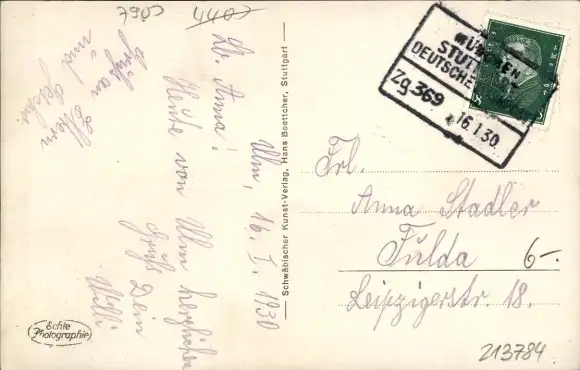 7903
4407
Ulm, 16. I. 1930
Lb. Anna!
Heute von Ulm herzlichen
Gruß Dein
Willi
Gruß an
Eltern
und
Echte
Photographie
Schwäbischer Kunst-Verlag, Hans Boettcher, Stuttgart
MÜNCHEN
STUTT
DEUTSCHE
Zg.369
16.1.30.
Frl.
Anna Stadler
Fulda
6-.
Leipzigerstr. 18.
213784